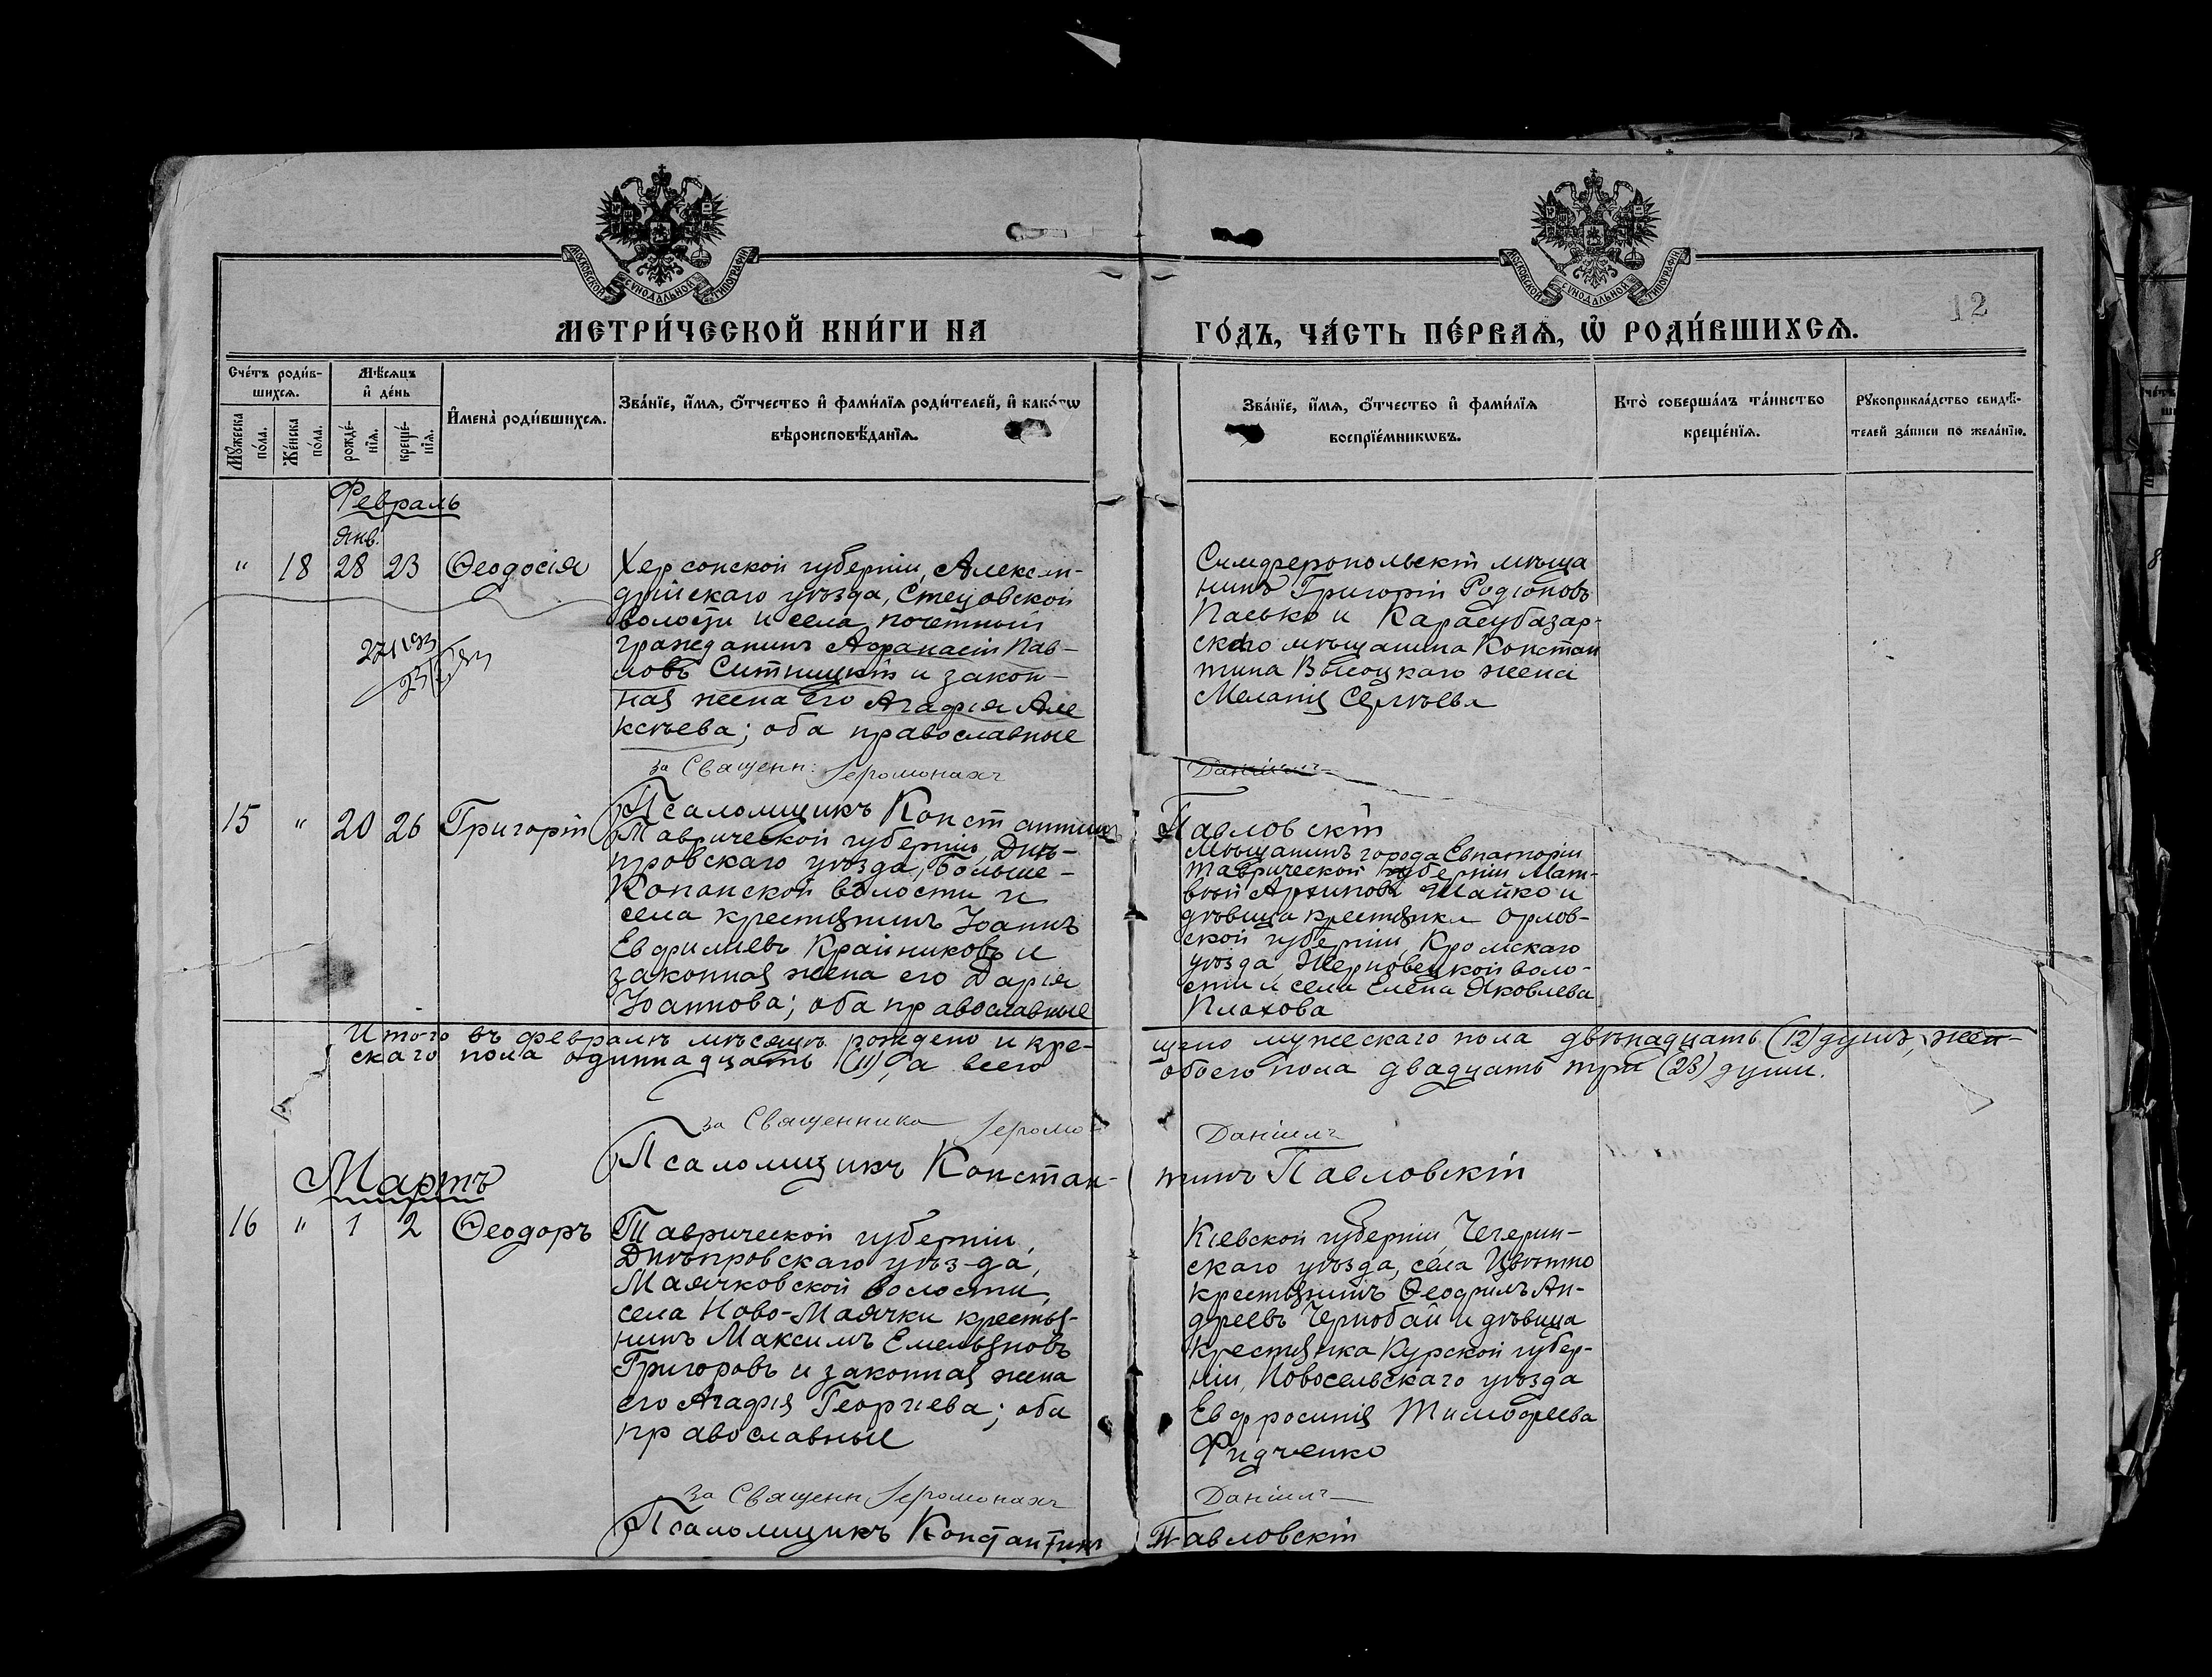 МОСКОВСКОЙ СѴНОДАЛЬНОЙ ТИПОГРАФІИ
МОСКОВСКОЙ СѴНОДАЛЬНОЙ ТИПОГРАФІИ
12
МЕТРИ́ЧЕСКОЙ КНИ́ГИ НА ГО́ДЪ, ЧА́СТЬ ПЕ́РВАѦ, Ѽ РОДИ́ВШИХСѦ.
Сче́тъ роди́в-
шихсѧ.
Мѣ́сѧцъ
и҆ де́нь
Мꙋ́жеска
по́ла.
Же́нска
по́ла.
рожде́-
нїѧ.
креще́-
нїѧ.
И҆мена̀ роди́вшихсѧ.
Зва́нїе, и҆́мѧ, ѻ҆́тчество и҆ фами́лїѧ роди́телей, и҆ како́гѡ
вѣроисповѣ́данїѧ.
Зва́нїе, и҆́мѧ, ѻ҆́тчество и҆ фами́лїѧ
воспрїе́мникѡвъ.
Кто̀ соверша́лъ та́инство
креще́нїѧ.
Рꙋкоприкла́дство свидѣ́-
телей за́писи по жела́нїю.
Февраль
Янв.
" 18 28 23 Ѳеодосія
Херсонской губерніи, Алексан-
дрійскаго уѣзда, Стецовской
волости и села, почетный
гражданинъ Аѳанасій Пав-
ловъ Ситницкій и закон-
ная жена его Агафія Але
ксѣева; оба православные
Симферопольскій мѣща
нинъ Григорій Родіоновъ
Пасько и Карасубазар-
скаго мѣщанина Констан
тина Высоцкаго жена
Меланія Сергѣева
за Священ: Іеромонахъ Даніилъ
Псаломщикъ Константинъ Павловскій
15 " 20 26 Григорій
Таврической губерніи, Днѣ-
провскаго уѣзда, Больше-
Копанской волости и
села крестьянинъ Іоаннъ
Евфиміевъ Крайниковъ и
законная жена его Дарія
Іоаннова; оба православные
Мѣщанинъ города Евпаторіи
Таврической губерніи Мат-
вѣй Архиповъ Шайко и
дѣвица крестьянка Орлов-
ской губерніи, Кромскаго
уѣзда, Жерновецкой воло-
сти и села Елена Яковлева
Плохова
Итого въ февралѣ мѣсяцѣ рождено и кре- щено мужескаго пола двѣнадцать (12) душъ, жен-
скаго пола одиннадцать (11), а всего обоего пола двадцать три (23) души.
за Священника Іеромо- Даніилъ
Псаломщикъ Констан- тинъ Павловскій
Мартъ
16 " 1 2 Ѳеодоръ
Таврической губерніи,
Днѣпровскаго уѣзда,
Маячковской волости,
села Ново-Маячки крестья-
нинъ Максимъ Емельяновъ
Григоровъ и законная жена
его Агафія Георгіева; оба
православные
Кіевской губерніи, Чегерин-
скаго уѣзда, села Цвѣтно
крестьянинъ Ѳеофилъ Ан-
дреевъ Чернобай и дѣвица
крестьянка Курской губер-
ніи, Новосельскаго уѣзда
Евфросинія Тимоѳеева
Фидченко
за Священ Іеромонахъ Даніилъ
Псаломщикъ Константинъ Павловскій